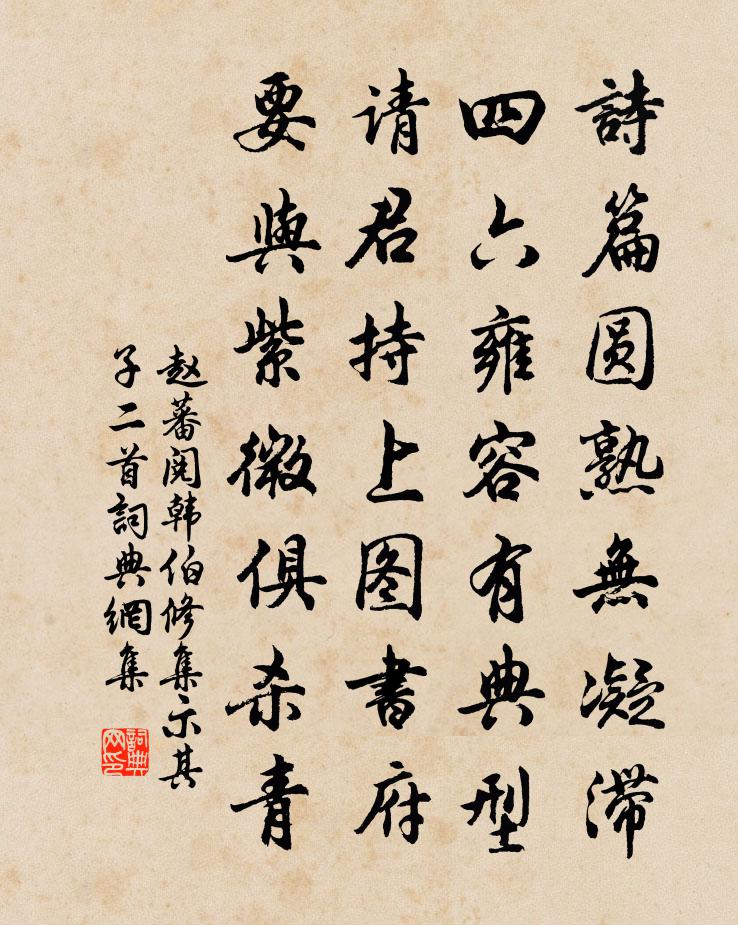 詩篇圆熟無凝滞
四六雍容有典型
请君持上图書府
要與紫微俱杀青
赵蕃阅韩伯修集示其
子二首詞典網集
詞典
网印